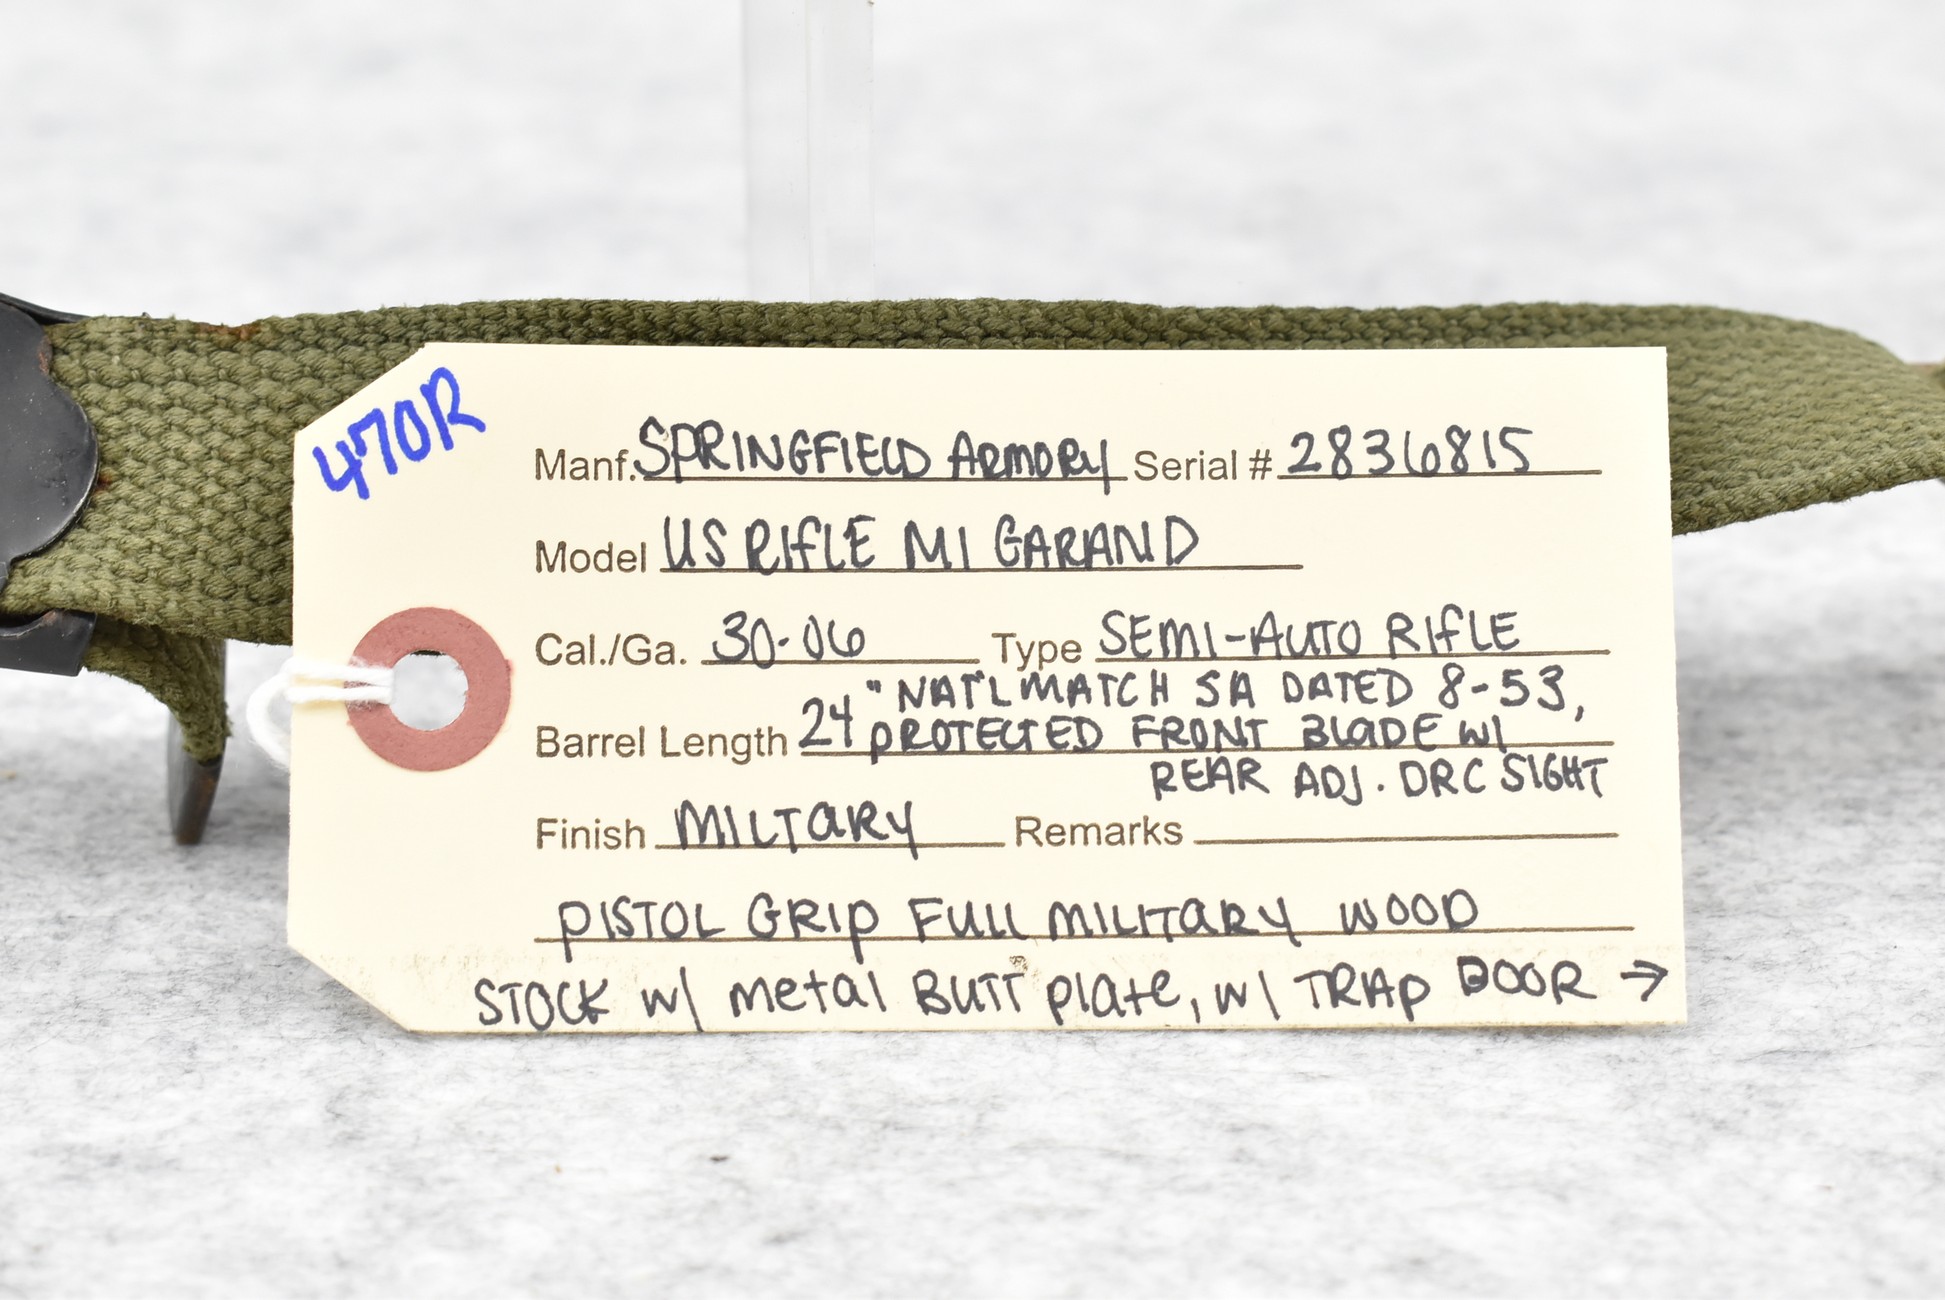 470R
Manf. SPRINGFIELD ARMORY Serial # 2836815
Model US RIFLE M1 GARAND
Cal./Ga. 30-06 Type SEMI-AUTO RIFLE
Barrel Length 24" NAT'L MATCH SA DATED 8-53,
PROTECTED FRONT BLADE W/
REAR ADJ. DRC SIGHT
Finish MILTARY Remarks
PISTOL GRIP FULL MILITARY WOOD
STOCK W/ METAL BUTT PLATE, W/ TRAP DOOR →